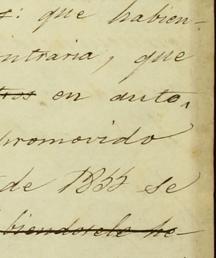 s: que habien-
ontraria, que
tros en auto,
promovido
de 1855 se
biendosele he-